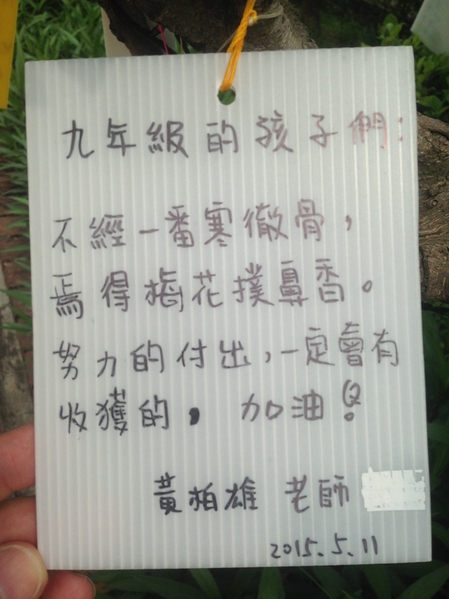 九年級的孩子們:
不經一番寒徹骨,
焉得梅花撲鼻香。
努力的付出,一定會有
收獲的, 加油!
黃柏雄 老師
2015.5.11